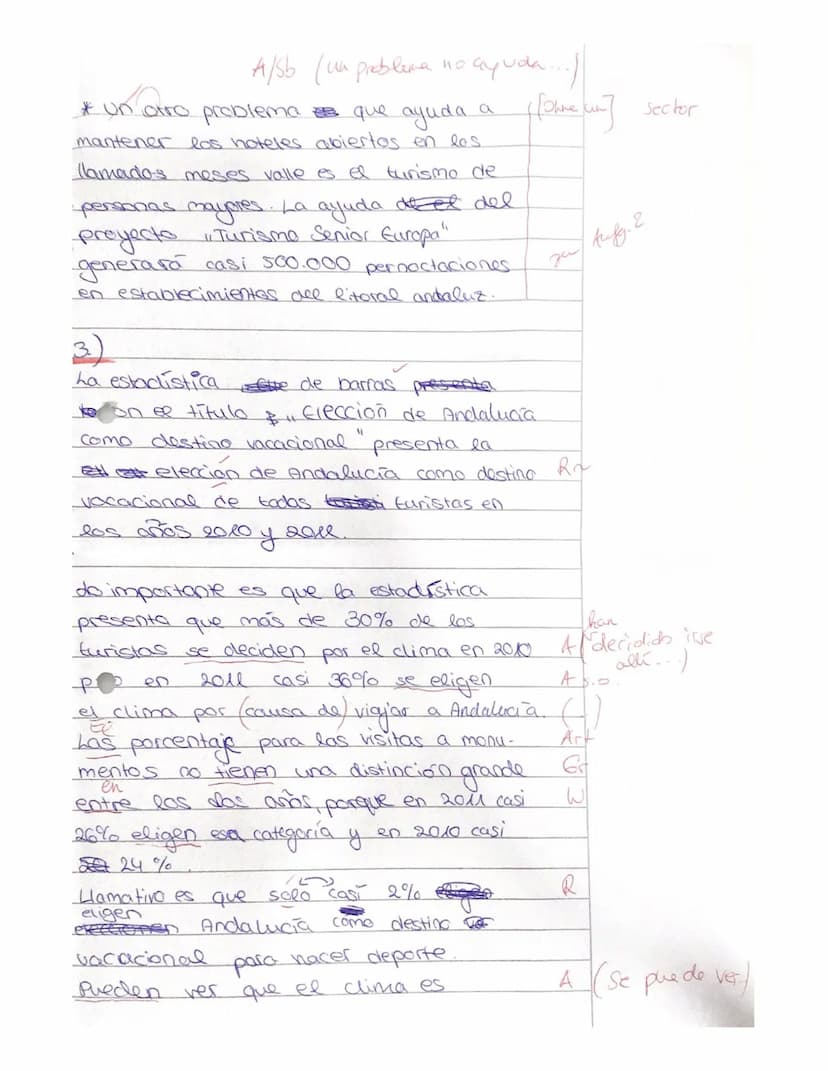 A/Sb (un problema no ayuda...)
* Un otro problema que ayuda a [Ohne un] sector
mantener los hoteles abiertos en los
llamados meses valle es el turismo de
personas mayores. La ayuda de el del
proyecto „Turismo Senior Europa" zu Aufg. 2
generará casi 500.000 pernoctaciones
en establecimientos del litoral andaluz.
3.)
La estadística de barras presenta
con el título „Elección de Andalucía
como destino vacacional" presenta la
elección de Andalucía como destino R
vacacional de todas turistas en
los años 2010 y 2011.
Lo importante es que la estadística
presenta que más de 30% de los han
turistas se deciden por el clima en 2010 A (decidido irse
allí...)
en 2011 casi 36% se eligen A s.o.
el clima por (causa de) viajar a Andalucía. ( )
El
Las porcentaje para las visitas a monu- Art
mentos no tienen una distinción grande Gr
en
entre los dos años, porque en 2011 casi W
26% eligen esa categoría y en 2010 casi
24%.
Llamativo es que soló casí 2% eligen R
eligen
Andalucía como destino
vacacional para hacer deporte.
Pueden ver que el clima es A (se puede ver)